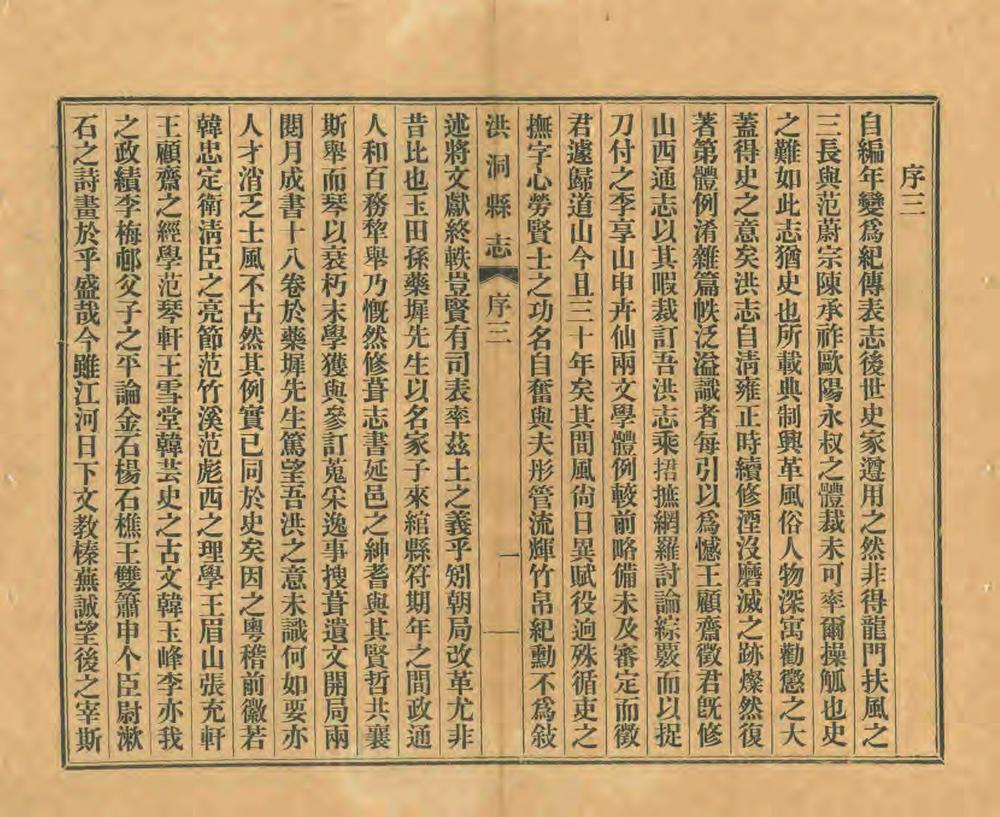 序三
自編年變爲紀傳表志後世史家遵用之然非得龍門扶風之
三長與范蔚宗陳承祚歐陽永叔之體裁未可率爾操觚也史
之難如此志猶史也所載典制興革風俗人物深寓勸懲之大
蓋得史之意矣洪志自淸雍正時續修湮沒磨滅之跡燦然復
著第體例淆雜篇帙泛溢識者每引以爲憾王顧齋徵君旣修
山西通志以其暇裁訂吾洪志乘捃摭網羅討論綜覈而以捉
刀付之李享山申卉仙兩文學體例較前略備未及審定而徵
君遽歸道山今且三十年矣其間風尙日異賦役逈殊循吏之
撫字心勞賢士之功名自奮與夫彤管流輝竹帛紀勳不爲敍
洪洞縣志 序三 一
述將文獻終軼豈賢有司表率茲土之義乎矧朝局改革尤非
昔比也玉田孫藥墀先生以名家子來綰縣符期年之間政通
人和百務犂舉乃慨然修葺志書延邑之紳耆與其賢哲共襄
斯舉而琴以衰朽末學獲與參訂蒐采逸事搜葺遺文開局兩
閱月成書十八卷於藥墀先生篤望吾洪之意未識何如要亦
人才消乏士風不古然其例實已同於史矣因之粵稽前徽若
韓忠定衛淸臣之亮節范竹溪范彪西之理學王眉山張充軒
王顧齋之經學范琴軒王雪堂韓芸史之古文韓玉峰李亦我
之政績李梅邨父子之平論金石楊石樵王雙簫申个臣尉漱
石之詩畫於乎盛哉今雖江河日下文教榛蕪誠望後之宰斯